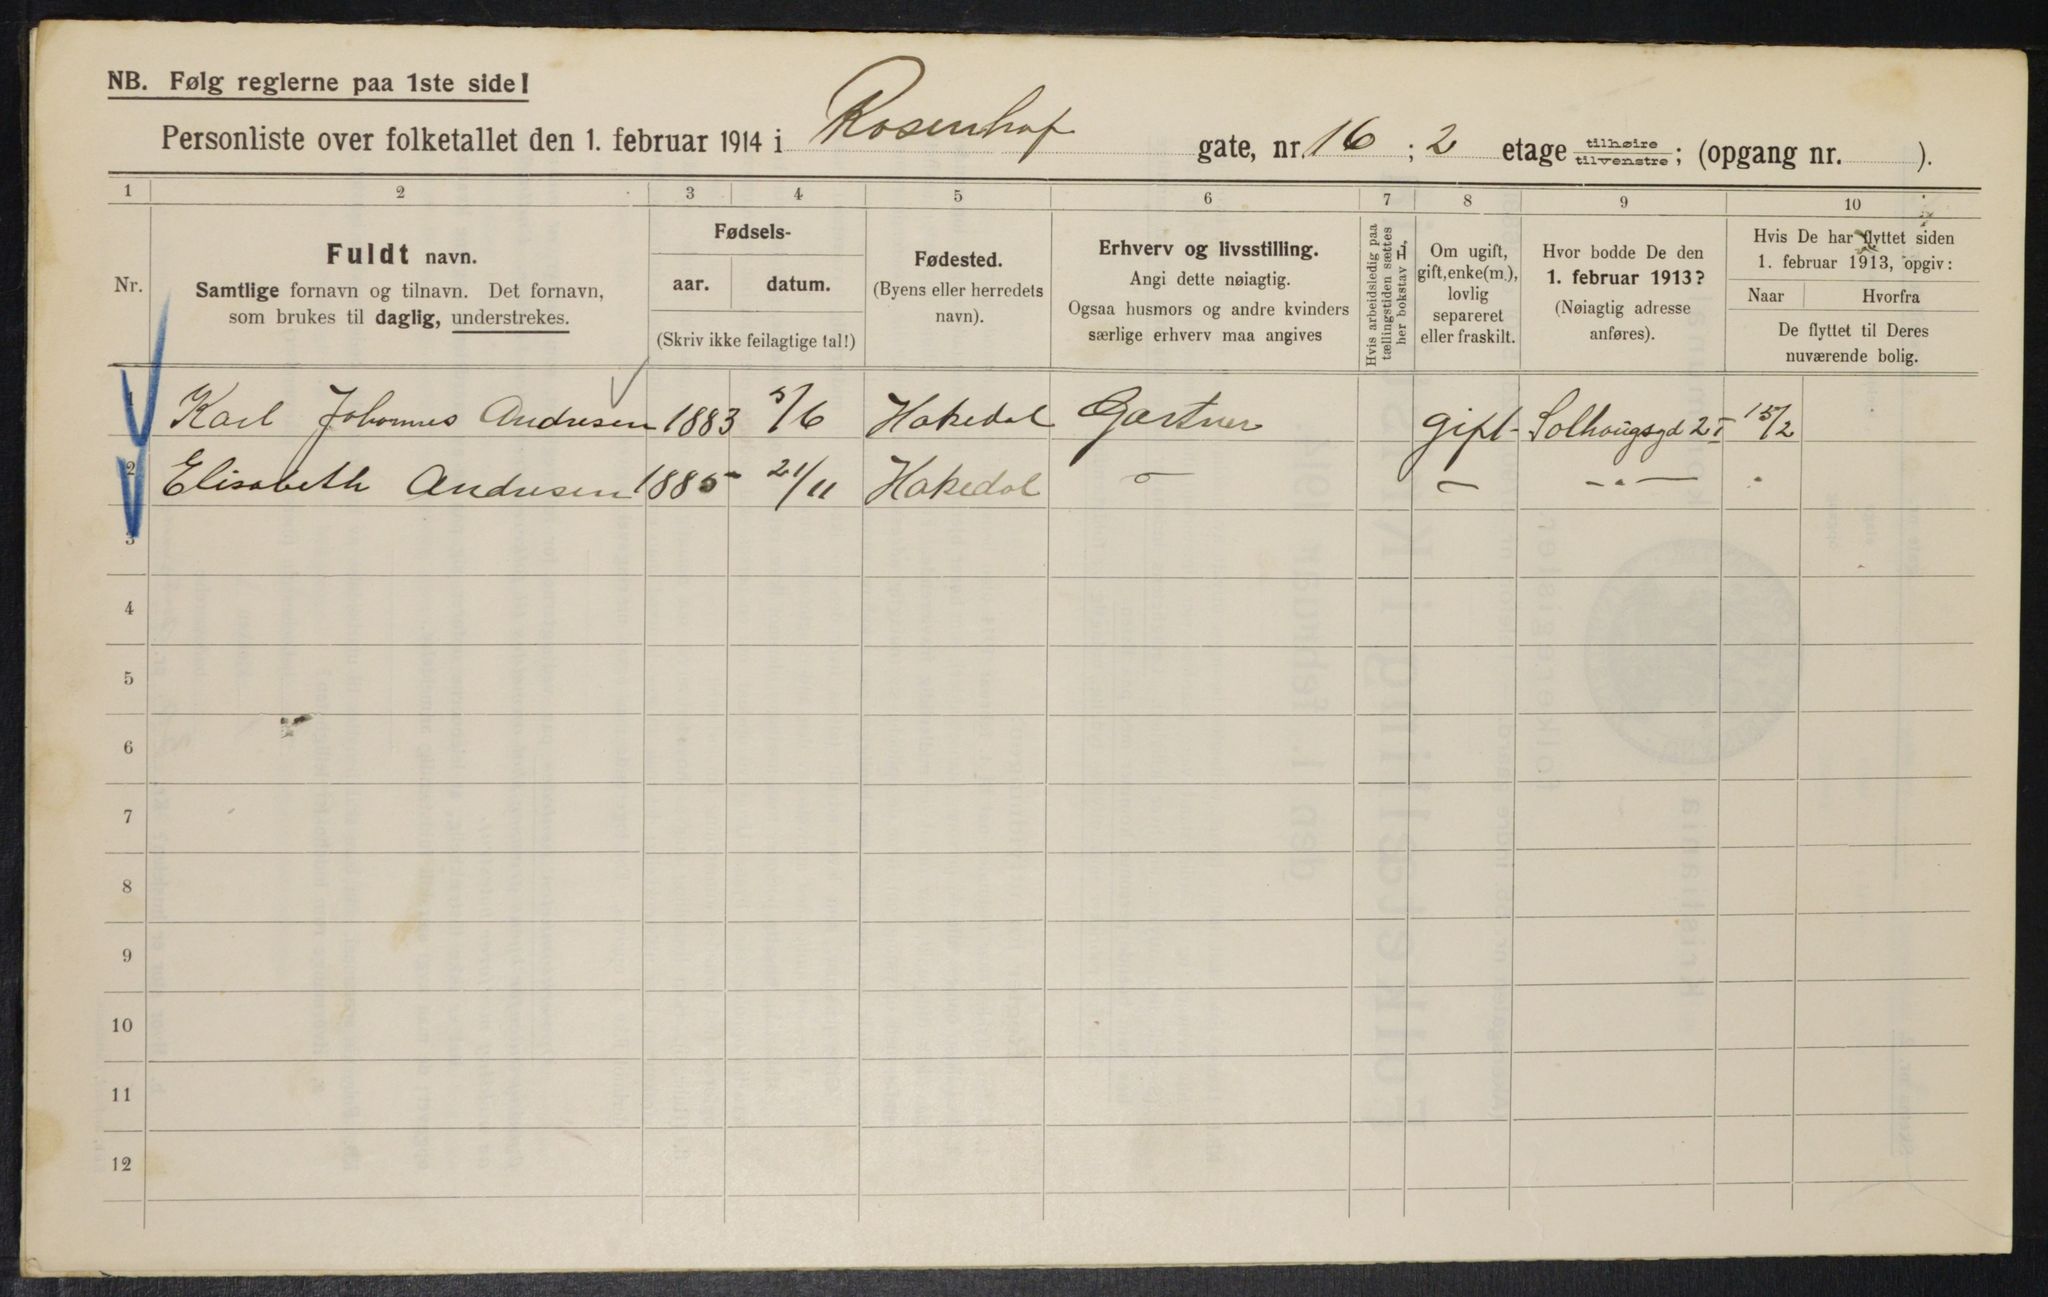 NB. Følg reglerne paa 1ste side!
Personliste over folketallet den 1. februar 1914 i Rosenhof gate, nr. 16 ; 2 etage tilhøire tilvenstre; (opgang nr. ).
1 2 3 4 5 6 7 8 9 10
Nr.
Fuldt navn.
Samtlige fornavn og tilnavn. Det fornavn,
som brukes til daglig, understrekes.
Fødsels-
aar. datum.
(Skriv ikke feilagtige tal!)
Fødested.
(Byens eller herredets
navn).
Erhverv og livsstilling.
Angi dette nøiagtig.
Ogsaa husmors og andre kvinders
særlige erhverv maa angives
Hvis arbeidsledig paa
tællingstiden sættes
her bokstav L.
Om ugift,
gift, enke(m.),
lovlig
separeret
eller fraskilt.
Hvor bodde De den
1. februar 1913?
(Nøiagtig adresse
anføres).
Hvis De har flyttet siden
1. februar 1913, opgiv:
Naar Hvorfra
De flyttet til Deres
nuværende bolig.
1 Karl Johannes Andresen 1883 5/6 Hakedal Gartner gift Solhougsgd 2 I 15/2
2 Elisabeth Andresen 1885 21/11 Hakedal - - - . - .
3
4
5
6
7
8
9
10
11
12